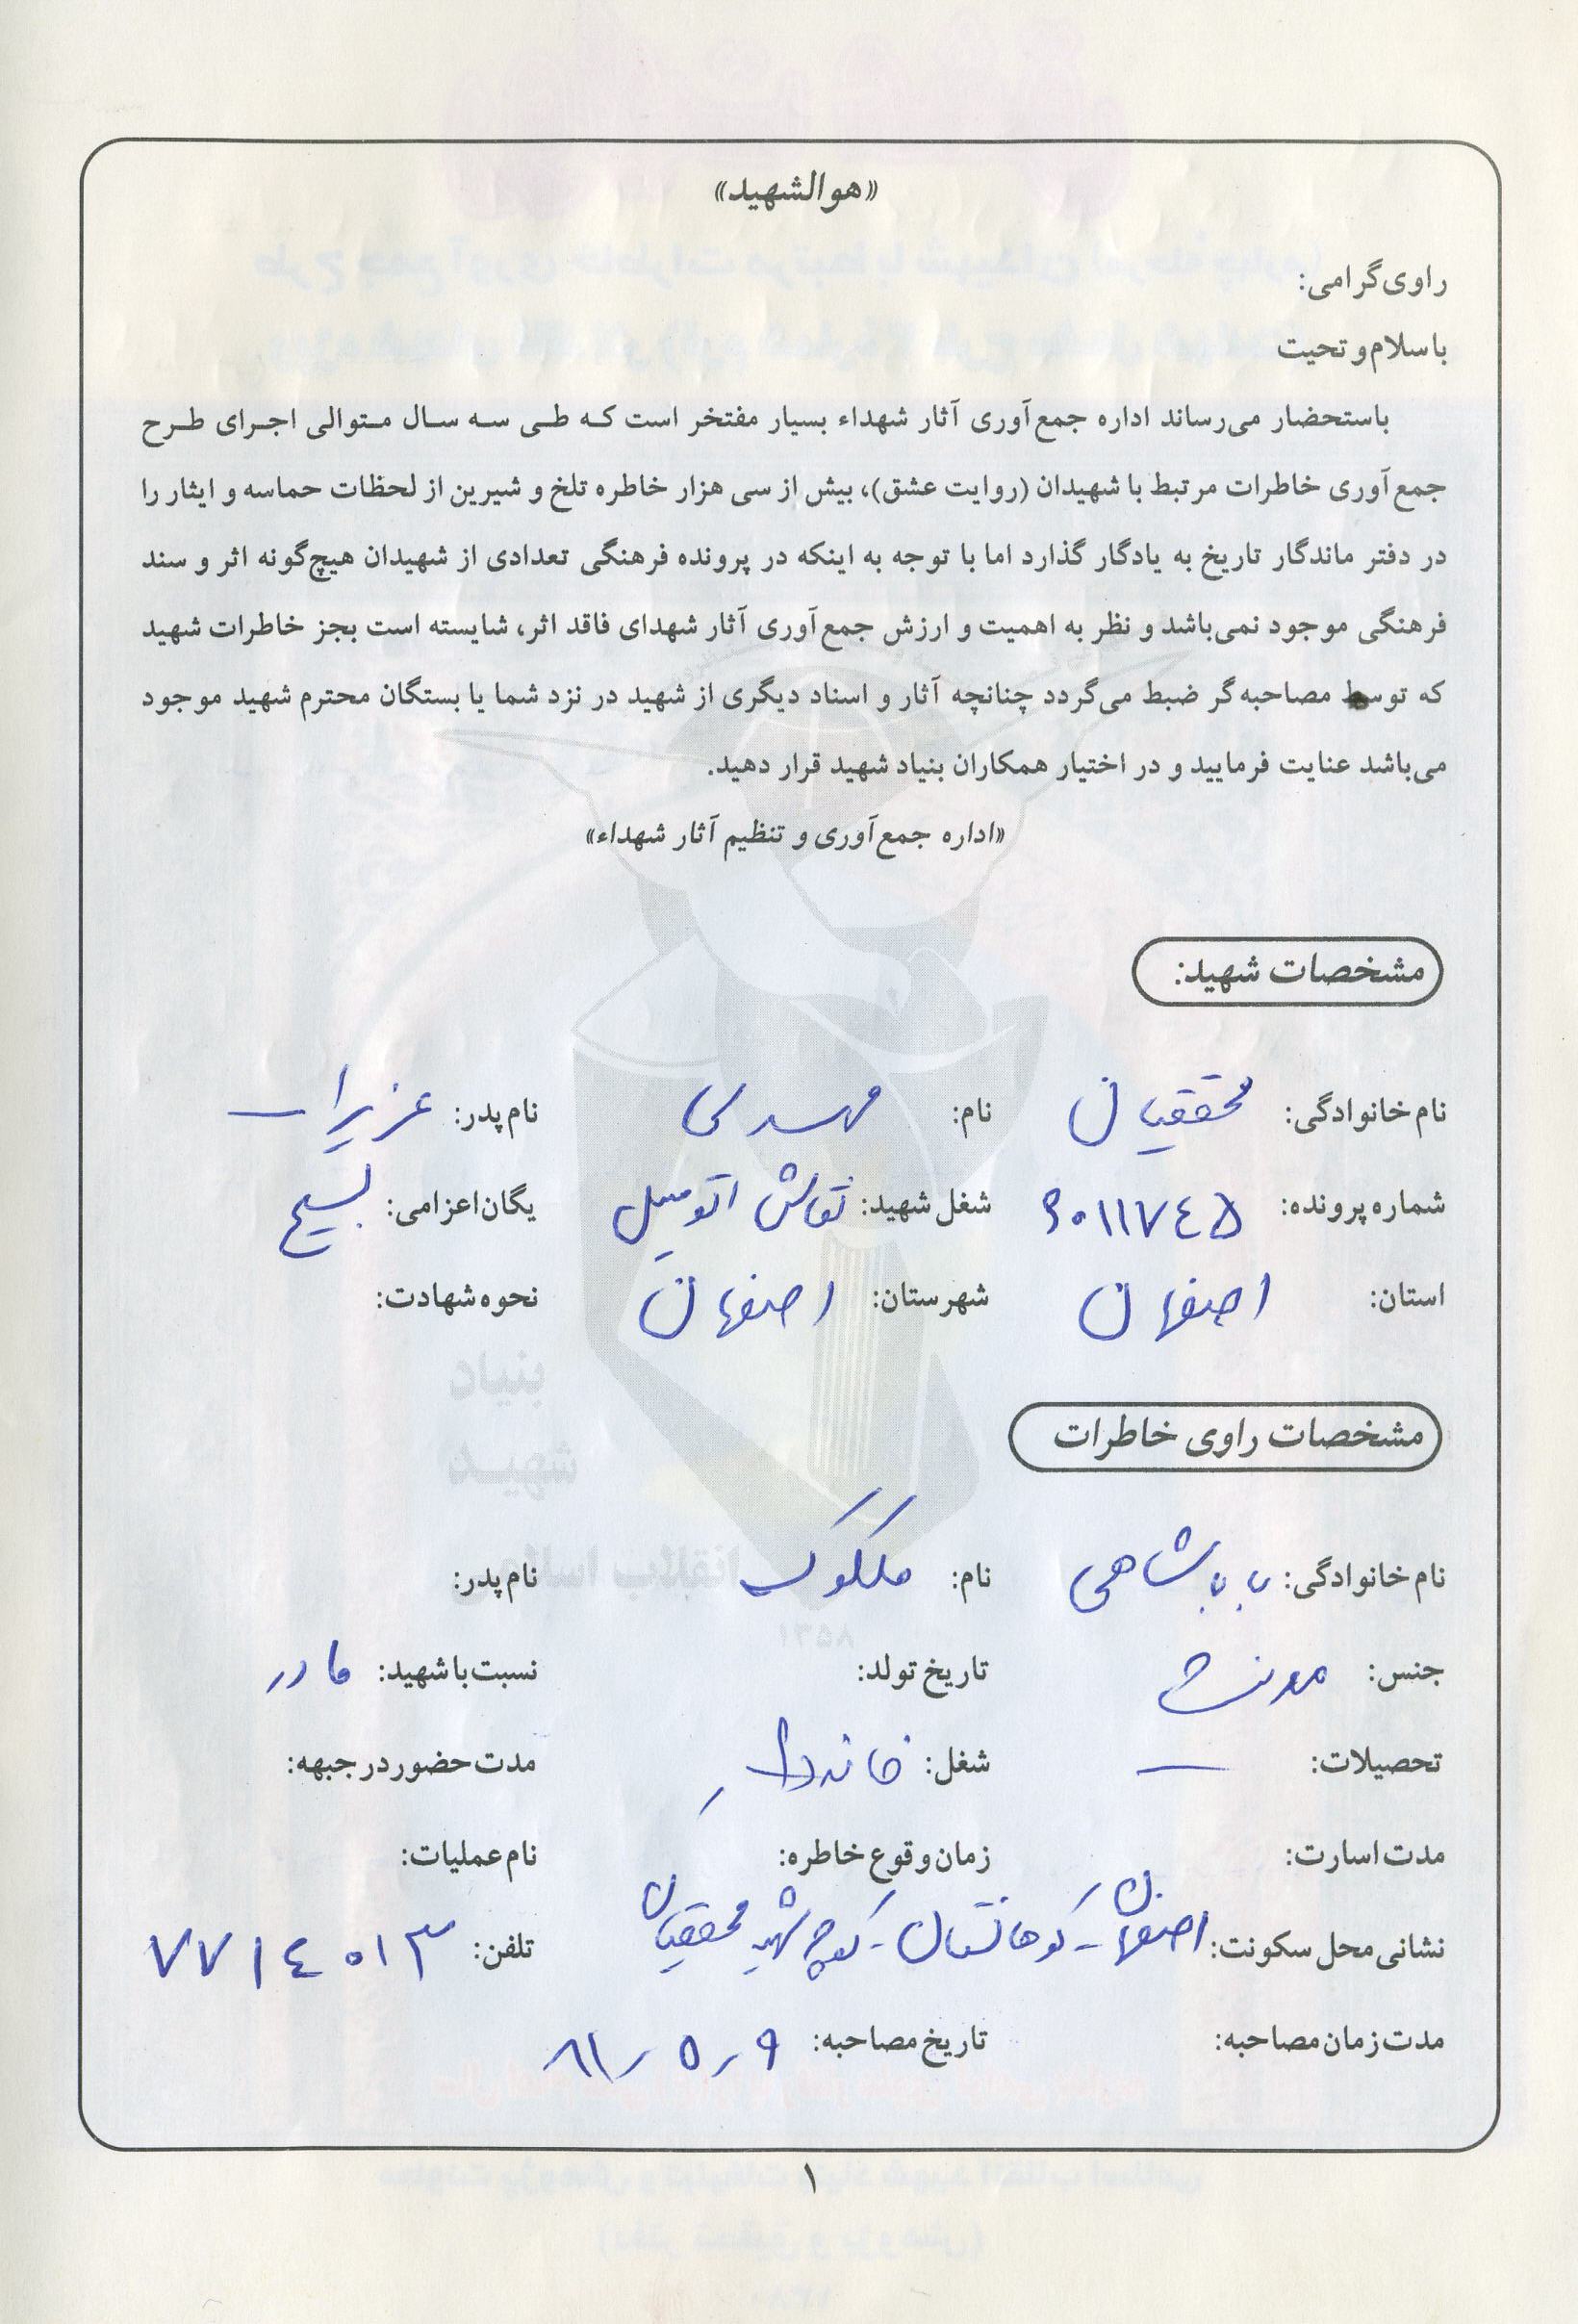 «هوالشهید»
راوی گرامی:
با سلام و تحیت
باستحضار می‌رساند اداره جمع‌آوری آثار شهداء بسیار مفتخر است که طی سه سال متوالی اجرای طرح
جمع‌آوری خاطرات مرتبط با شهیدان (روایت عشق)، بیش از سی هزار خاطره تلخ و شیرین از لحظات حماسه و ایثار را
در دفتر ماندگار تاریخ به یادگار گذارد اما با توجه به اینکه در پرونده فرهنگی تعدادی از شهیدان هیچ‌گونه اثر و سند
فرهنگی موجود نمی‌باشد و نظر به اهمیت و ارزش جمع‌آوری آثار شهدای فاقد اثر، شایسته است بجز خاطرات شهید
که توسط مصاحبه‌گر ضبط می‌گردد چنانچه آثار و اسناد دیگری از شهید در نزد شما یا بستگان محترم شهید موجود
می‌باشد عنایت فرمایید و در اختیار همکاران بنیاد شهید قرار دهید.
«اداره جمع‌آوری و تنظیم آثار شهداء»
مشخصات شهید:
نام خانوادگی: محققیان نام: مهدی نام پدر:
شماره پرونده: ۶۰۱۱۷۴۵ شغل شهید: نقاش اتومبیل یگان اعزامی: بسیج
استان: اصفهان شهرستان: اصفهان نحوه شهادت:
مشخصات راوی خاطرات
نام خانوادگی: باباشاهی نام: نام پدر:
جنس: مونث تاریخ تولد: نسبت با شهید: مادر
تحصیلات: — شغل: خانه‌دار مدت حضور در جبهه:
مدت اسارت: زمان وقوع خاطره: نام عملیات:
نشانی محل سکونت: اصفهان - کوهانستان - کوچه شهید محققیان تلفن: ۷۷۱۴۰۱۳
مدت زمان مصاحبه: تاریخ مصاحبه: ۸۱/۵/۹
۱